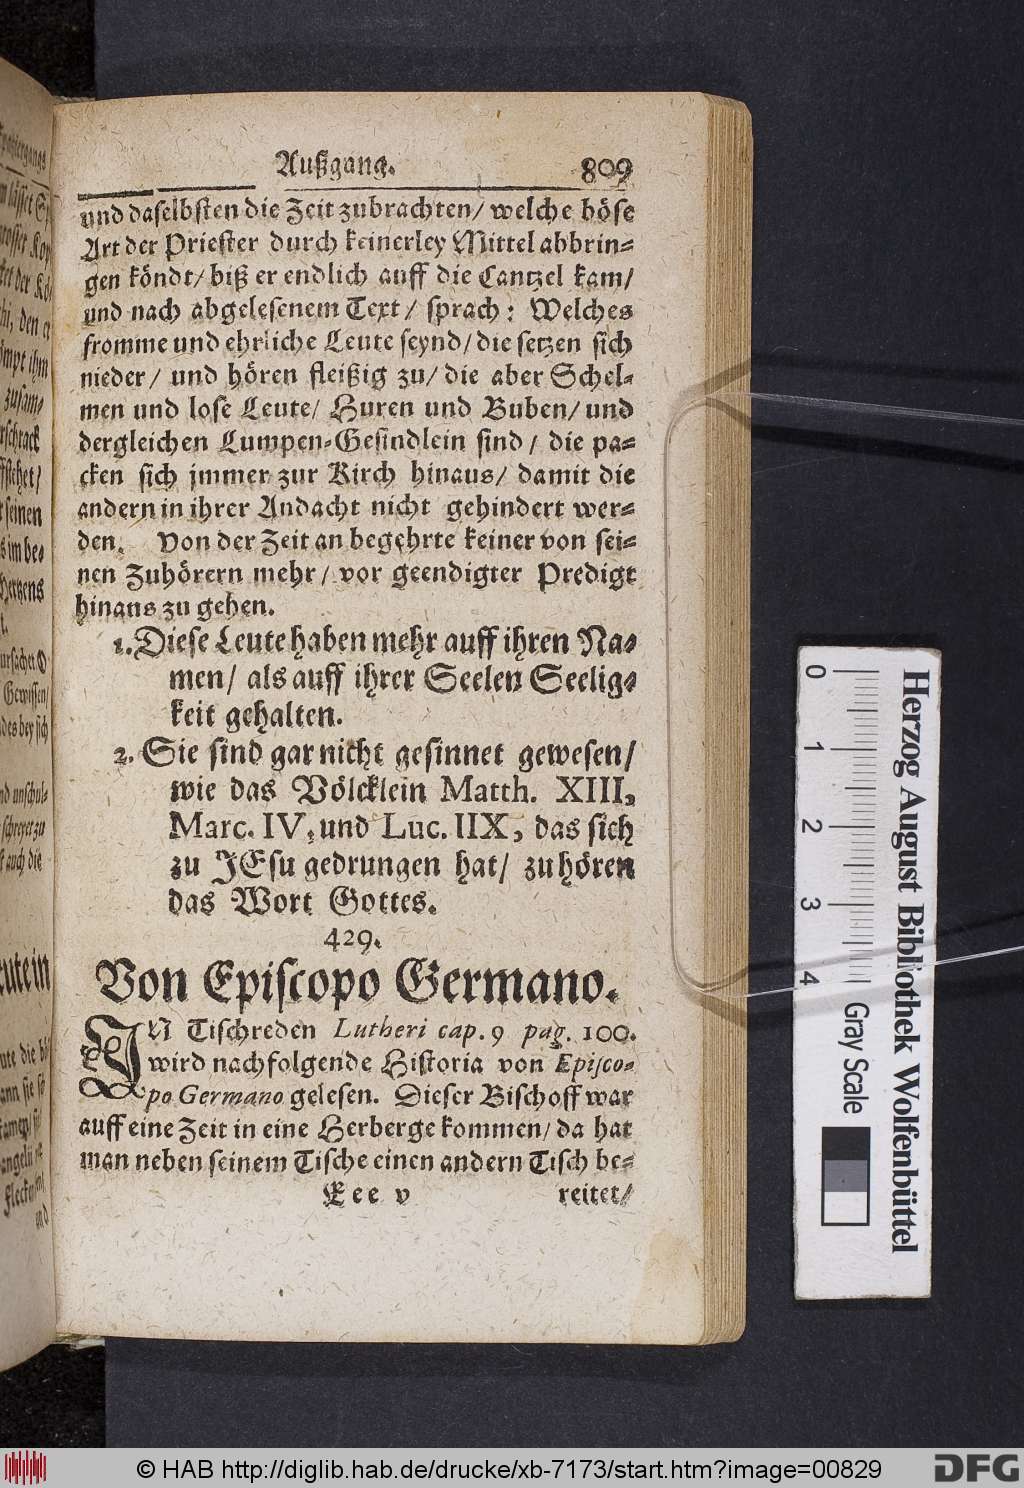 Außgang. 809
und daselbsten die Zeit zubrachten/ welche böse
Art der Priester durch keinerley Mittel abbrin-
gen köndt/ biß er endlich auff die Cantzel kam/
und nach abgelesenem Text/ sprach: Welches
fromme und ehrliche Leute seynd/ die setzen sich
nieder/ und hören fleißig zu/ die aber Schel-
men und lose Leute/ Huren und Buben/ und
dergleichen Lumpen-Gesindlein sind/ die pa-
cken sich immer zur Kirch hinaus/ damit die
andern in ihrer Andacht nicht gehindert wer-
den. Von der Zeit an begehrte keiner von sei-
nen Zuhörern mehr/ vor geendigter Predigt
hinaus zu gehen.
1. Diese Leute haben mehr auff ihren Na-
men/ als auff ihrer Seelen Seelig-
keit gehalten.
2. Sie sind gar nicht gesinnet gewesen/
wie das Völcklein Matth. XIII,
Marc. IV, und Luc. IIX, das sich
zu JEsu gedrungen hat/ zu hören
das Wort Gottes.
429.
Von Episcopo Germano.
IN Tischreden Lutheri cap. 9 pag. 100.
wird nachfolgende Historia von Episco-
po Germano gelesen. Dieser Bischoff war
auff eine Zeit in eine Herberge kommen/ da hat
man neben seinem Tische einen andern Tisch be-
Eee v reitet/
0 1 2 3 4
Herzog August Bibliothek Wolfenbüttel
Gray Scale
© HAB http://diglib.hab.de/drucke/xb-7173/start.htm?image=00829
DFG